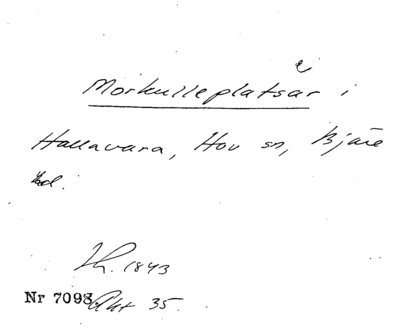 Morkulleplatsar i
e
Hallavara, Hov sn, Bjäre
hd.
Lh. 1843
Nr 7098 Akt 35.